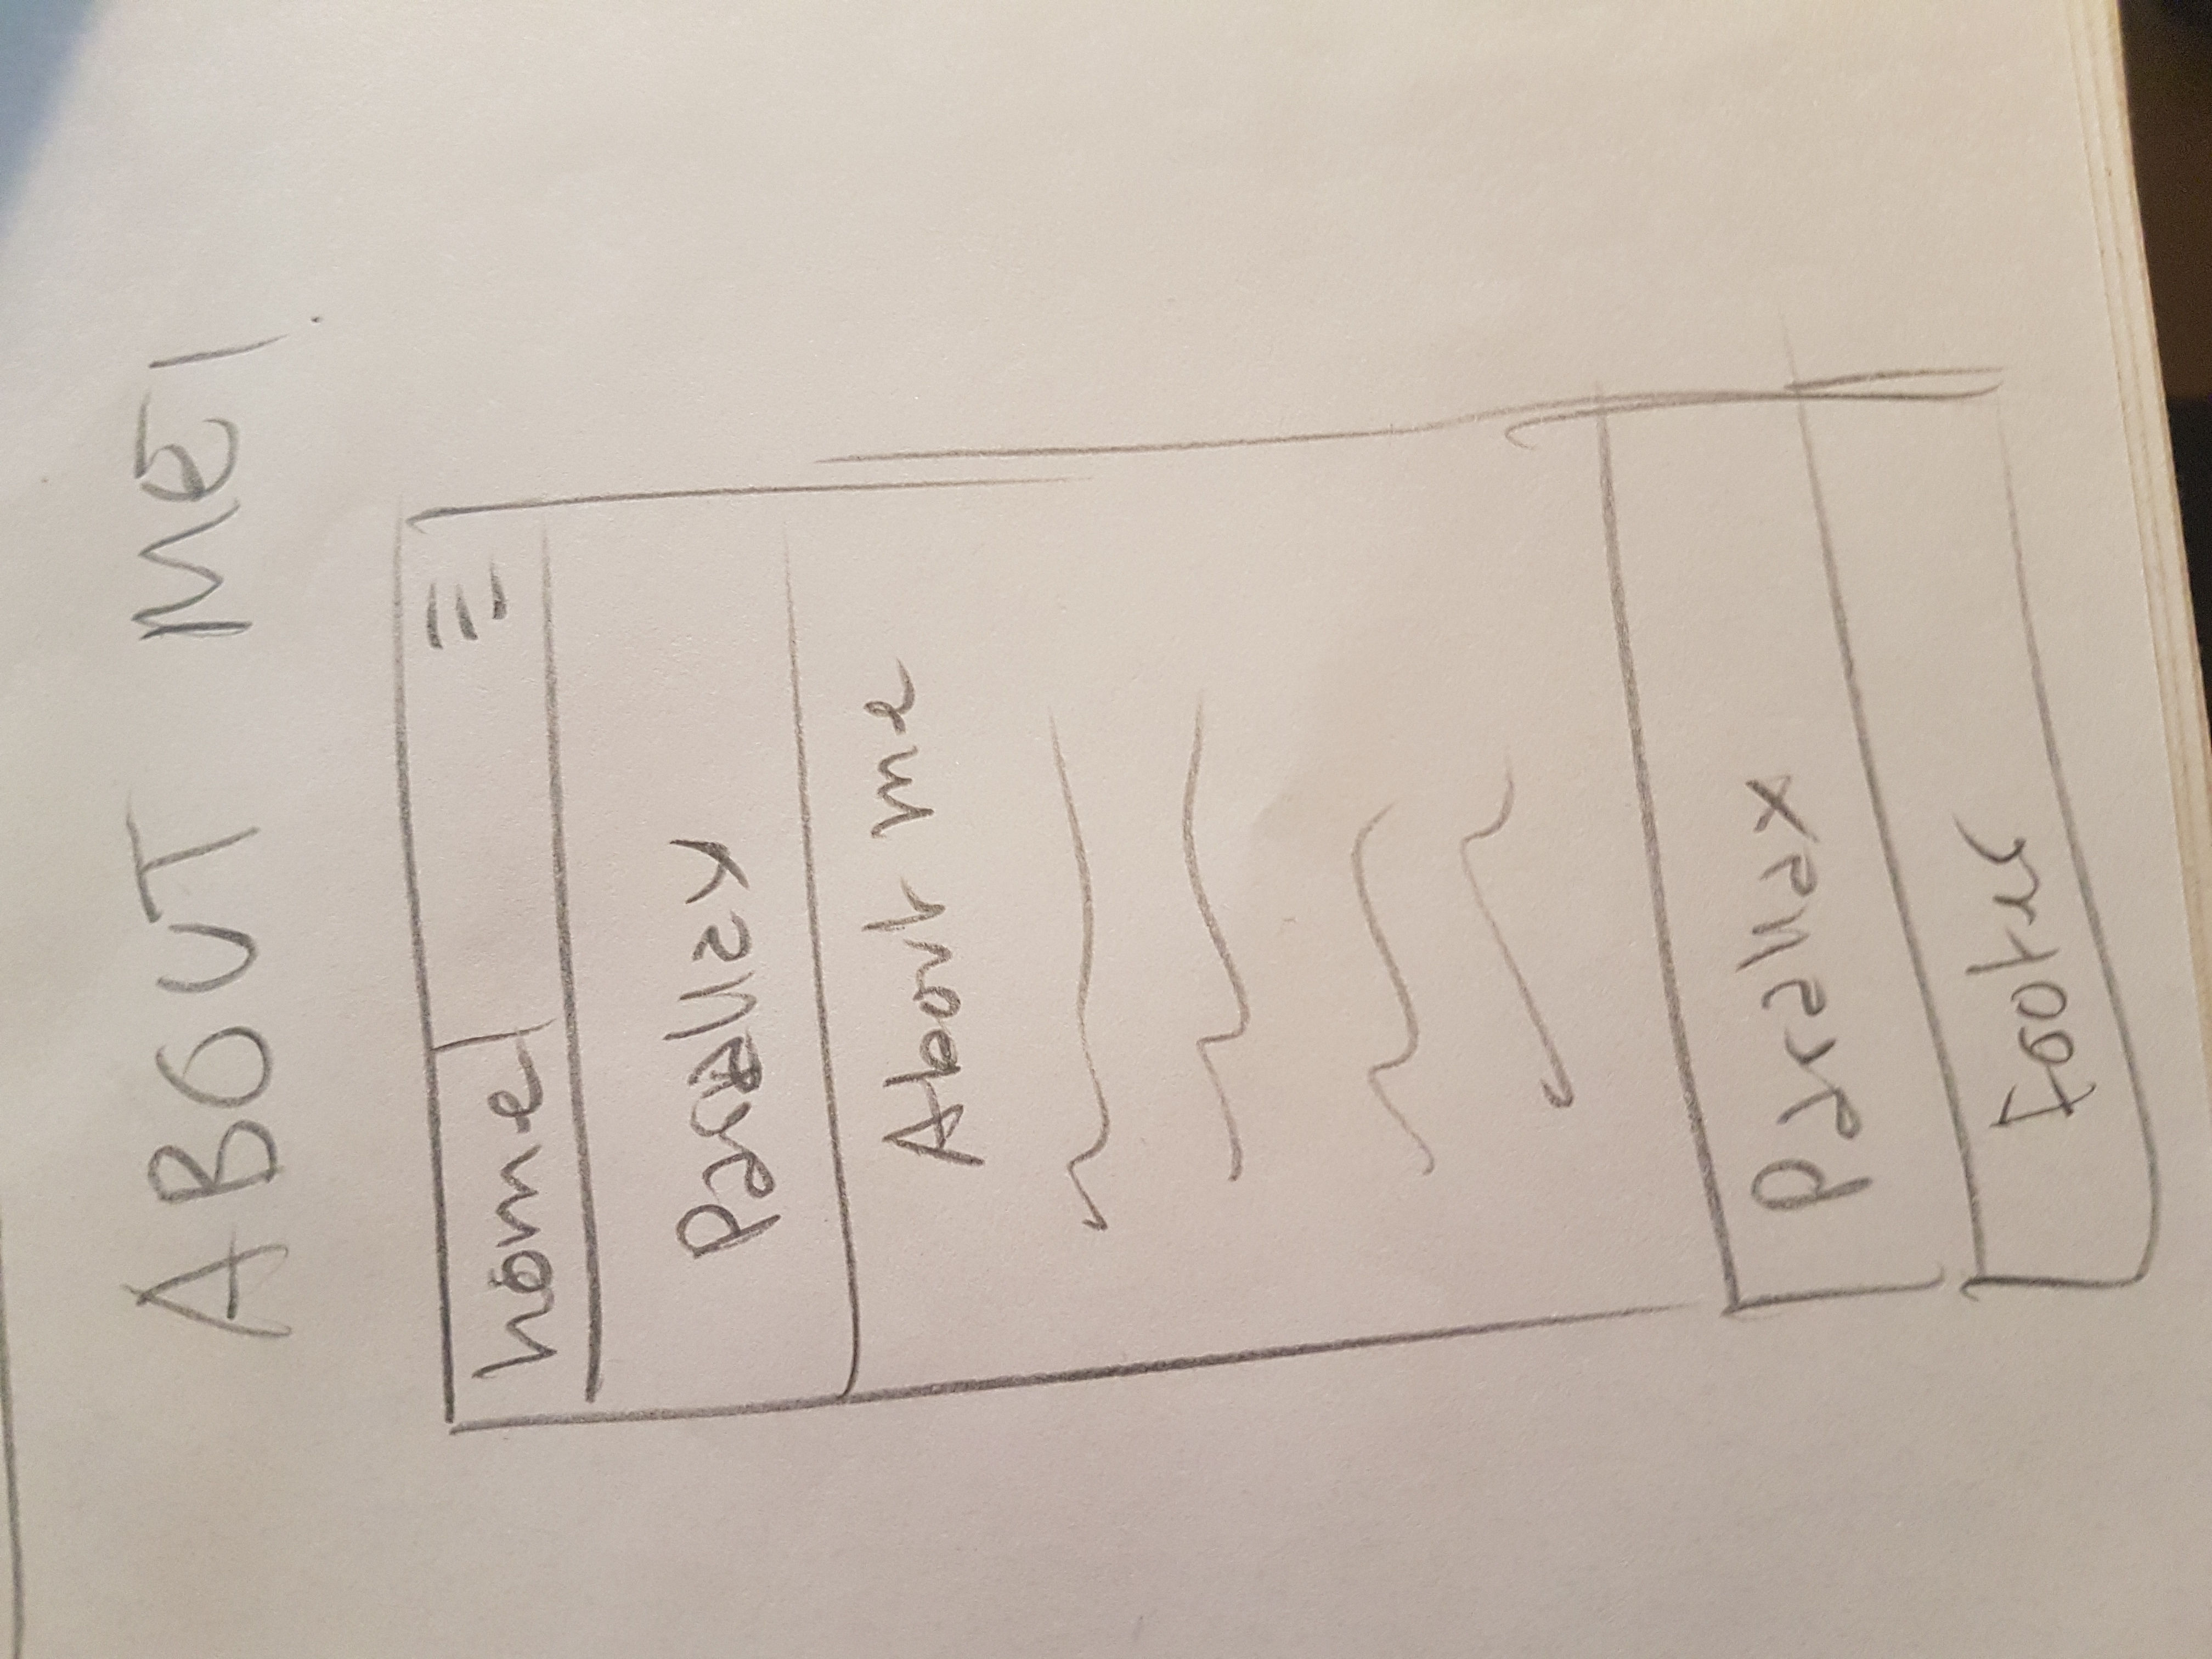 ABOUT ME!
home
Parallax
About me
Parallax
Footer